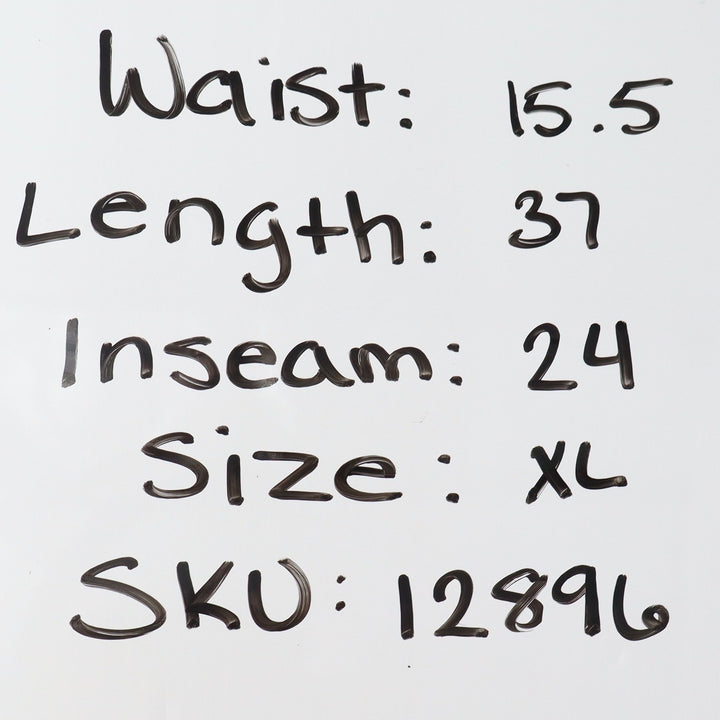 Waist: 15.5
Length: 37
Inseam: 24
Size: XL
SKU: 12896